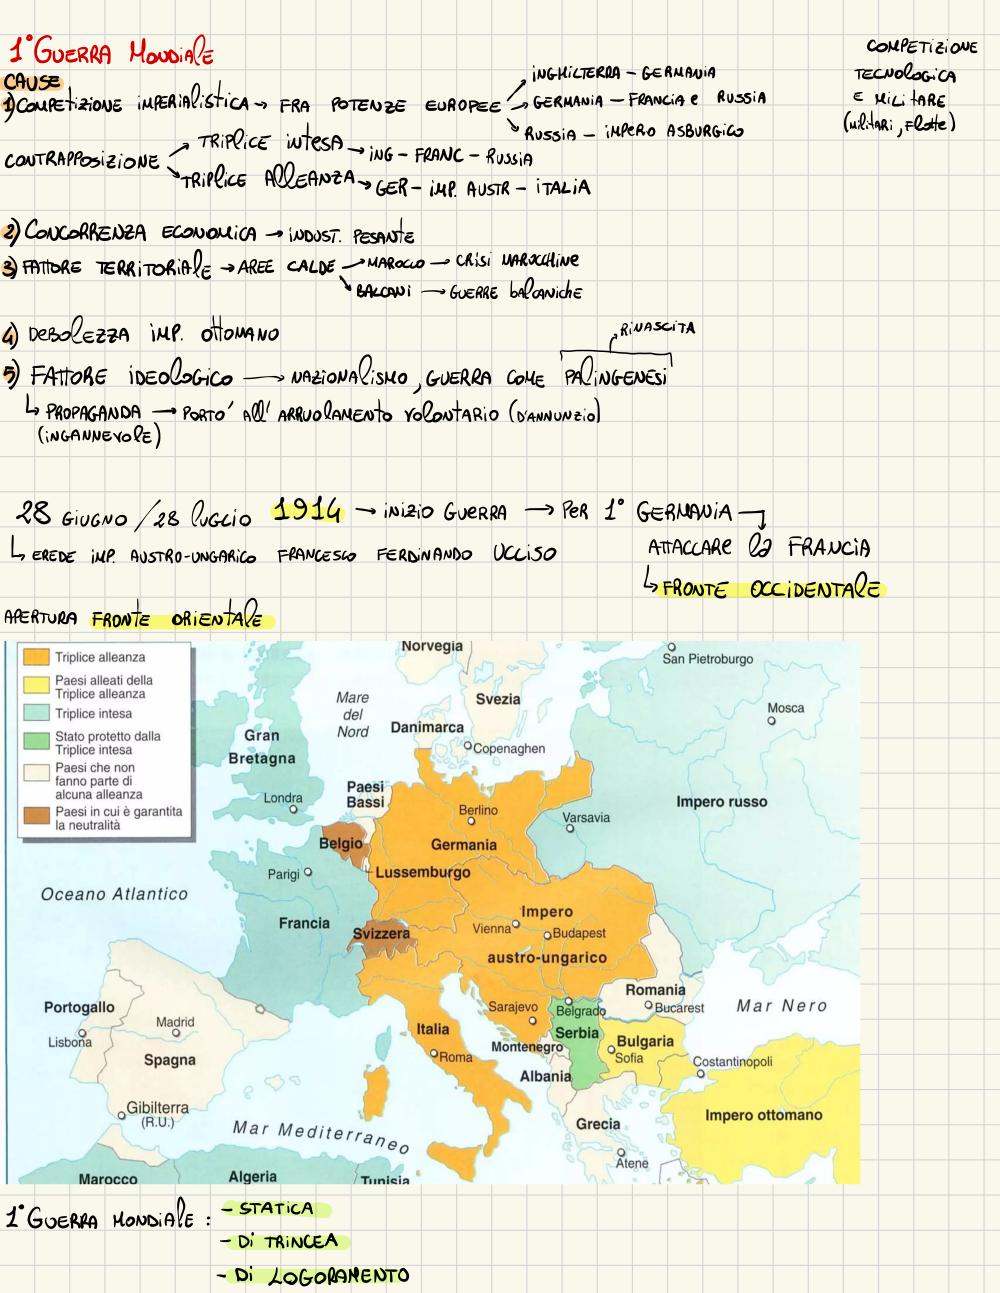 1° GUERRA MONDIALE
CAUSE
1) COMPETIZIONE IMPERIALISTICA → FRA POTENZE EUROPEE
→ INGHILTERRA - GERMANIA
→ GERMANIA - FRANCIA e RUSSIA
→ RUSSIA - IMPERO ASBURGICO
COMPETIZIONE
TECNOLOGICA
E MILITARE
(militari, flotte)
CONTRAPPOSIZIONE
→ TRIPLICE INTESA → ING - FRANC - RUSSIA
→ TRIPLICE ALLEANZA → GER - IMP. AUSTR - ITALIA
2) CONCORRENZA ECONOMICA → INDUST. PESANTE
3) FATTORE TERRITORIALE → AREE CALDE → MAROCCO → CRISI MAROCCHINE
→ BALCANI → GUERRE balcaniche
4) DEBOLEZZA IMP. OTTOMANO
RINASCITA
5) FATTORE IDEOLOGICO → NAZIONALISMO, GUERRA COME PALINGENESI
↳ PROPAGANDA → PORTO' All' ARRUOLAMENTO VOLONTARIO (D'ANNUNZIO)
(INGANNEVOLE)
28 GIUGNO / 28 LUGLIO 1914 → INIZIO GUERRA → PER 1° GERMANIA
↳ EREDE IMP. AUSTRO-UNGARICO FRANCESCO FERDINANDO UCCISO
ATTACCARE la FRANCIA
↳ FRONTE OCCIDENTALE
APERTURA FRONTE ORIENTALE
Triplice alleanza
Paesi alleati della
Triplice alleanza
Triplice intesa
Stato protetto dalla
Triplice intesa
Paesi che non
fanno parte di
alcuna alleanza
Paesi in cui è garantita
la neutralità
Norvegia
San Pietroburgo
Svezia
Mosca
Mare
del
Nord
Danimarca
Copenaghen
Gran
Bretagna
Londra
Paesi
Bassi
Berlino
Varsavia
Impero russo
Belgio
Germania
Parigi
Lussemburgo
Oceano Atlantico
Francia
Svizzera
Impero
Vienna
Budapest
austro-ungarico
Romania
Bucarest
Mar Nero
Portogallo
Lisbona
Madrid
Spagna
Sarajevo
Belgrado
Serbia
Italia
Roma
Montenegro
Bulgaria
Sofia
Costantinopoli
Albania
Gibilterra
(R.U.)
Mar Mediterraneo
Grecia
Atene
Impero ottomano
Marocco
Algeria
Tunisia
1° GUERRA MONDIALE :
- STATICA
- DI TRINCEA
- DI LOGORAMENTO